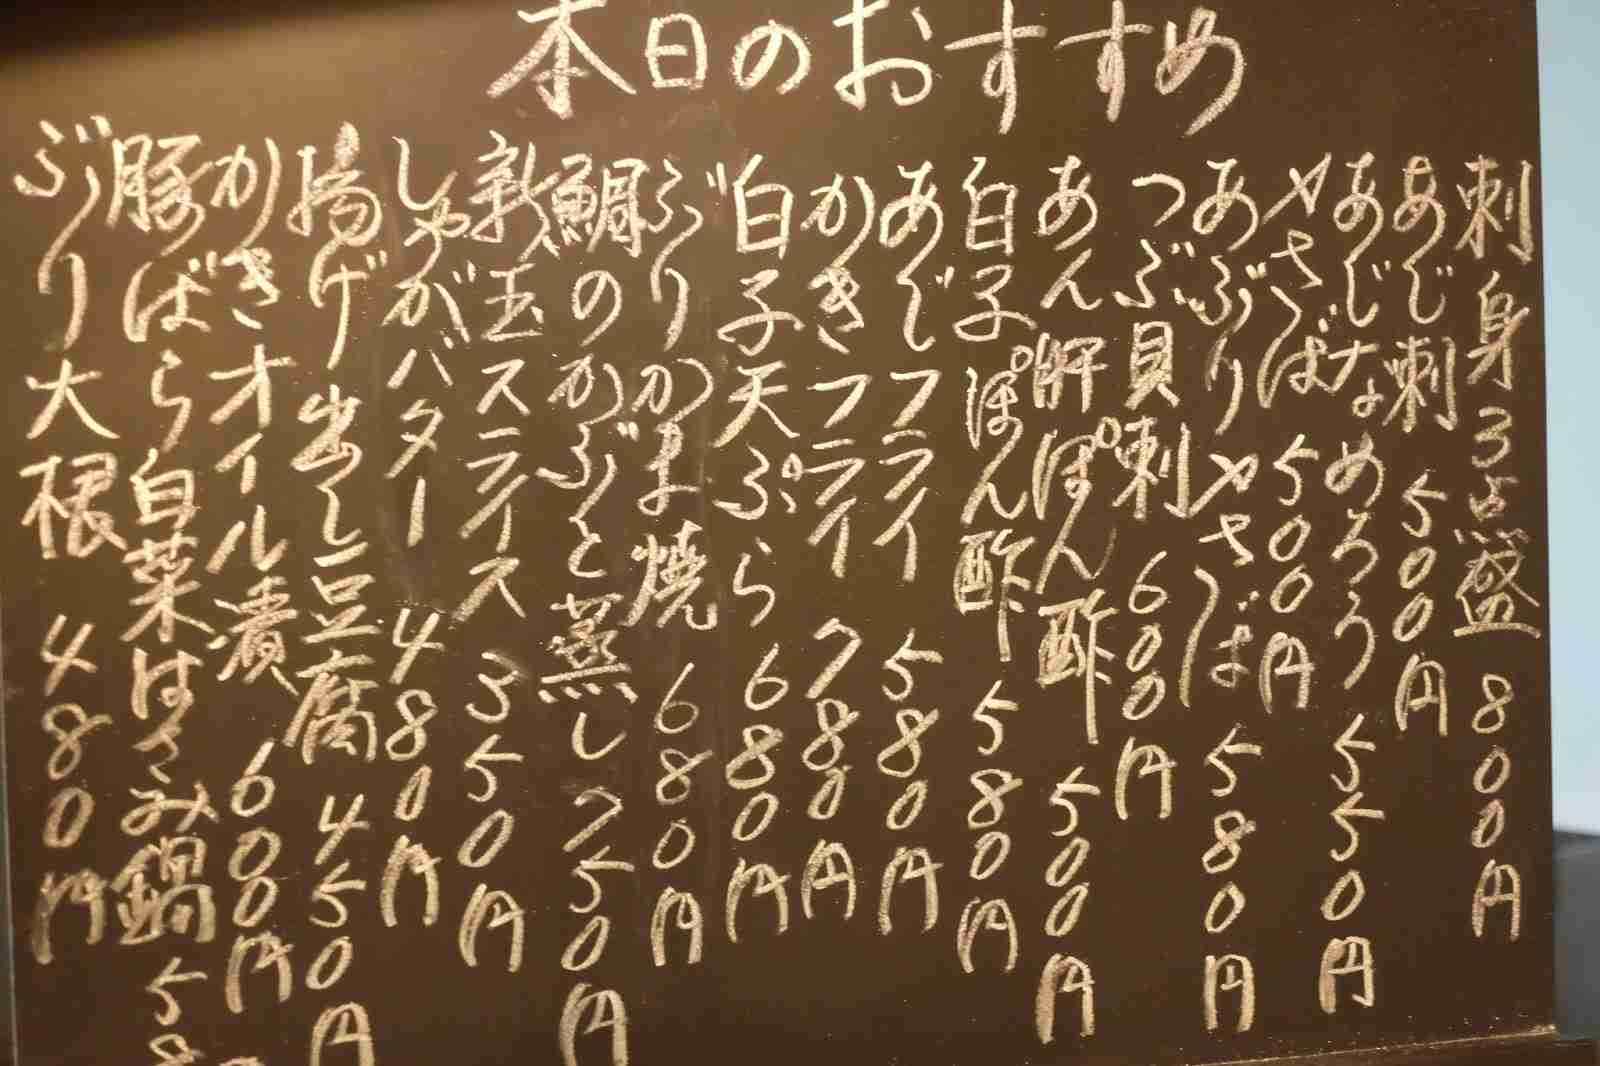 本日のおすすめ
刺身3点盛 800円
あじ刺 500円
あじなめろう 550円
〆さば 500円
あぶり〆さば 580円
つぶ貝刺 600円
あん肝ぽん酢 500円
白子ぽん酢 580円
あじフライ 580円
かきフライ 780円
白子天ぷら 680円
ぶりかま焼 680円
鯛のかぶと蒸し 750円
新玉スライス 350円
じゃがバター 480円
揚げ出し豆腐 450円
かきオイル漬 600円
豚ばら白菜はさみ鍋 58
ぶり大根 480円